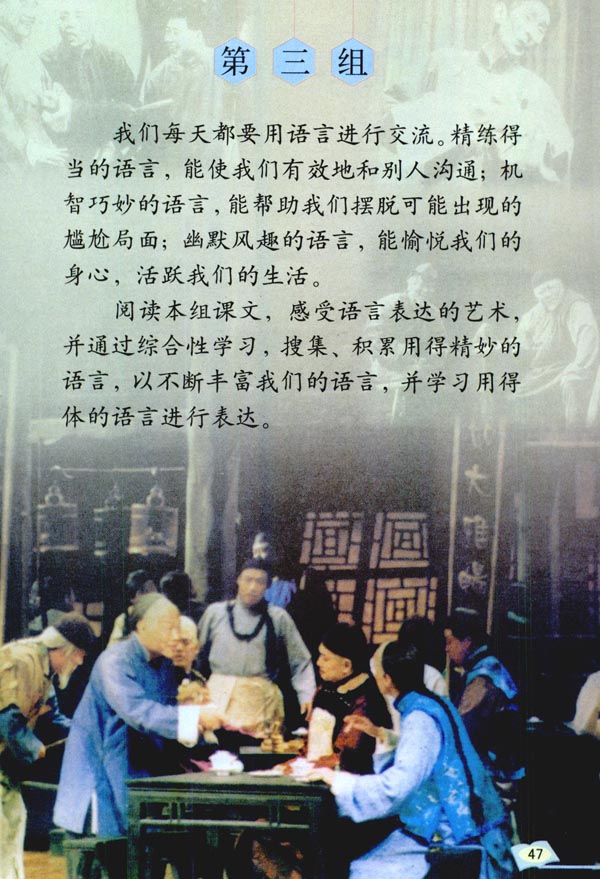 第三组
我们每天都要用语言进行交流。精练得
当的语言，能使我们有效地和别人沟通；机
智巧妙的语言，能帮助我们摆脱可能出现的
尴尬局面；幽默风趣的语言，能愉悦我们的
身心，活跃我们的生活。
阅读本组课文，感受语言表达的艺术，
并通过综合性学习，搜集、积累用得精妙的
语言，以不断丰富我们的语言，并学习用得
体的语言进行表达。
大
47